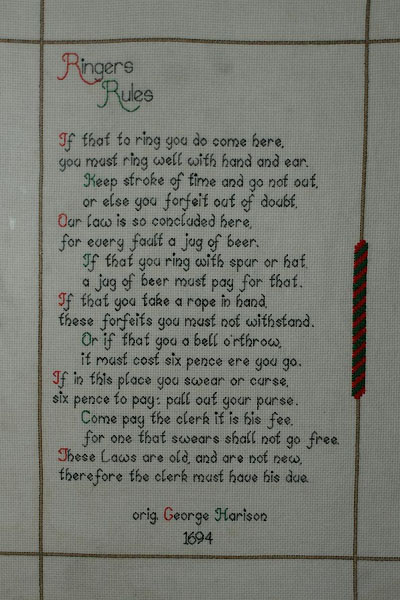 Ringers
Rules
If that to ring you do come here,
you must ring well with hand and ear.
Keep stroke of time and go not out,
or else you forfeit out of doubt.
Our law is so concluded here,
for every fault a jug of beer.
If that you ring with spur or hat,
a jug of beer must pay for that.
If that you take a rope in hand,
these forfeits you must not withstand.
Or if that you a bell o'rthrow,
it must cost six pence ere you go.
If in this place you swear or curse,
six pence to pay: pull out your purse.
Come pay the clerk it is his fee,
for one that swears shall not go free.
These Laws are old, and are not new,
therefore the clerk must have his due.
orig. George Harison
1694